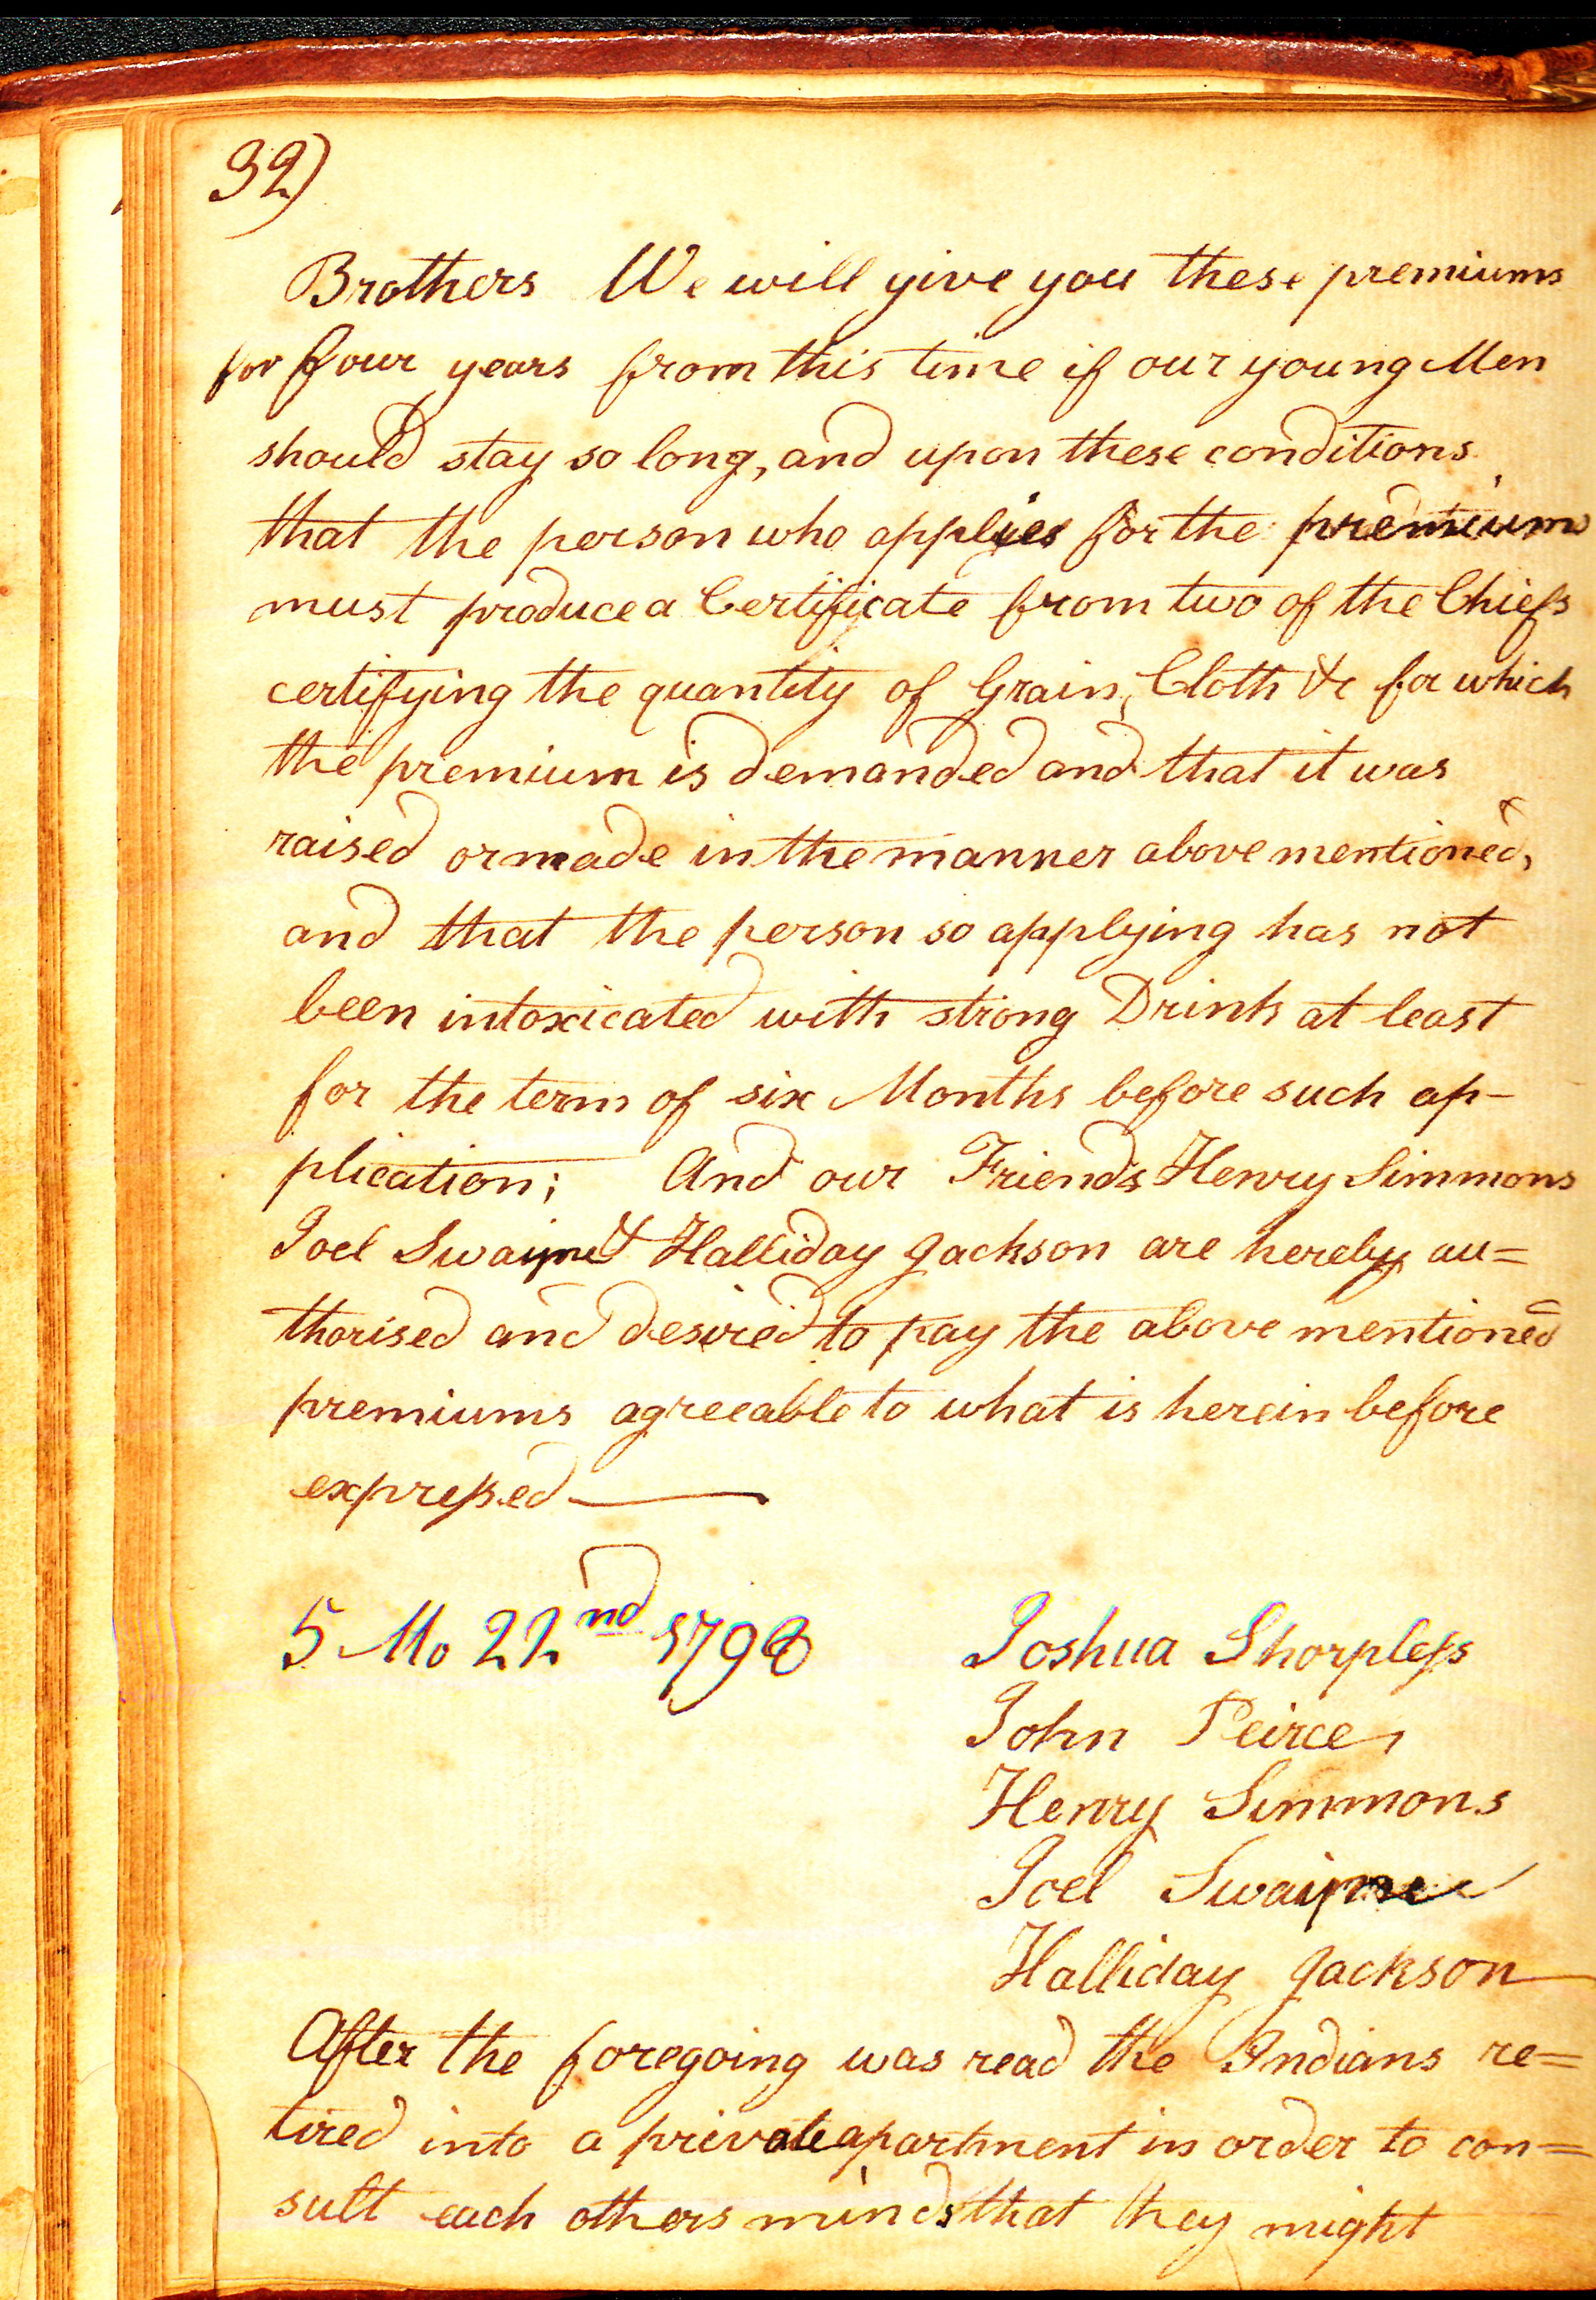 32)
Brothers We will give you these premiums
for four years from this time if our young Men
should stay so long, and upon these conditions
that the person who applies for the premiums
must produce a Certificate from two of the Chiefs
certifying the quantity of Grain, Cloth &c for which
the premium is demanded and that it was
raised or made in the manner above mentioned,
and that the person so applying has not
been intoxicated with strong Drink at least
for the term of six Months before such ap-
plication; And our Friends Henry Simmons
Joel Swayne & Halliday Jackson are hereby au=
thorised and desired to pay the above mentioned
premiums agreeable to what is herein before
expreſsed —
5 Mo 22nd 1798
Joshua Sharpleſs
John Peirce
Henry Simmons
Joel Swayne
Halliday Jackson
After the foregoing was read the Indians re=
tired into a private apartment in order to con=
sult each others minds that they might